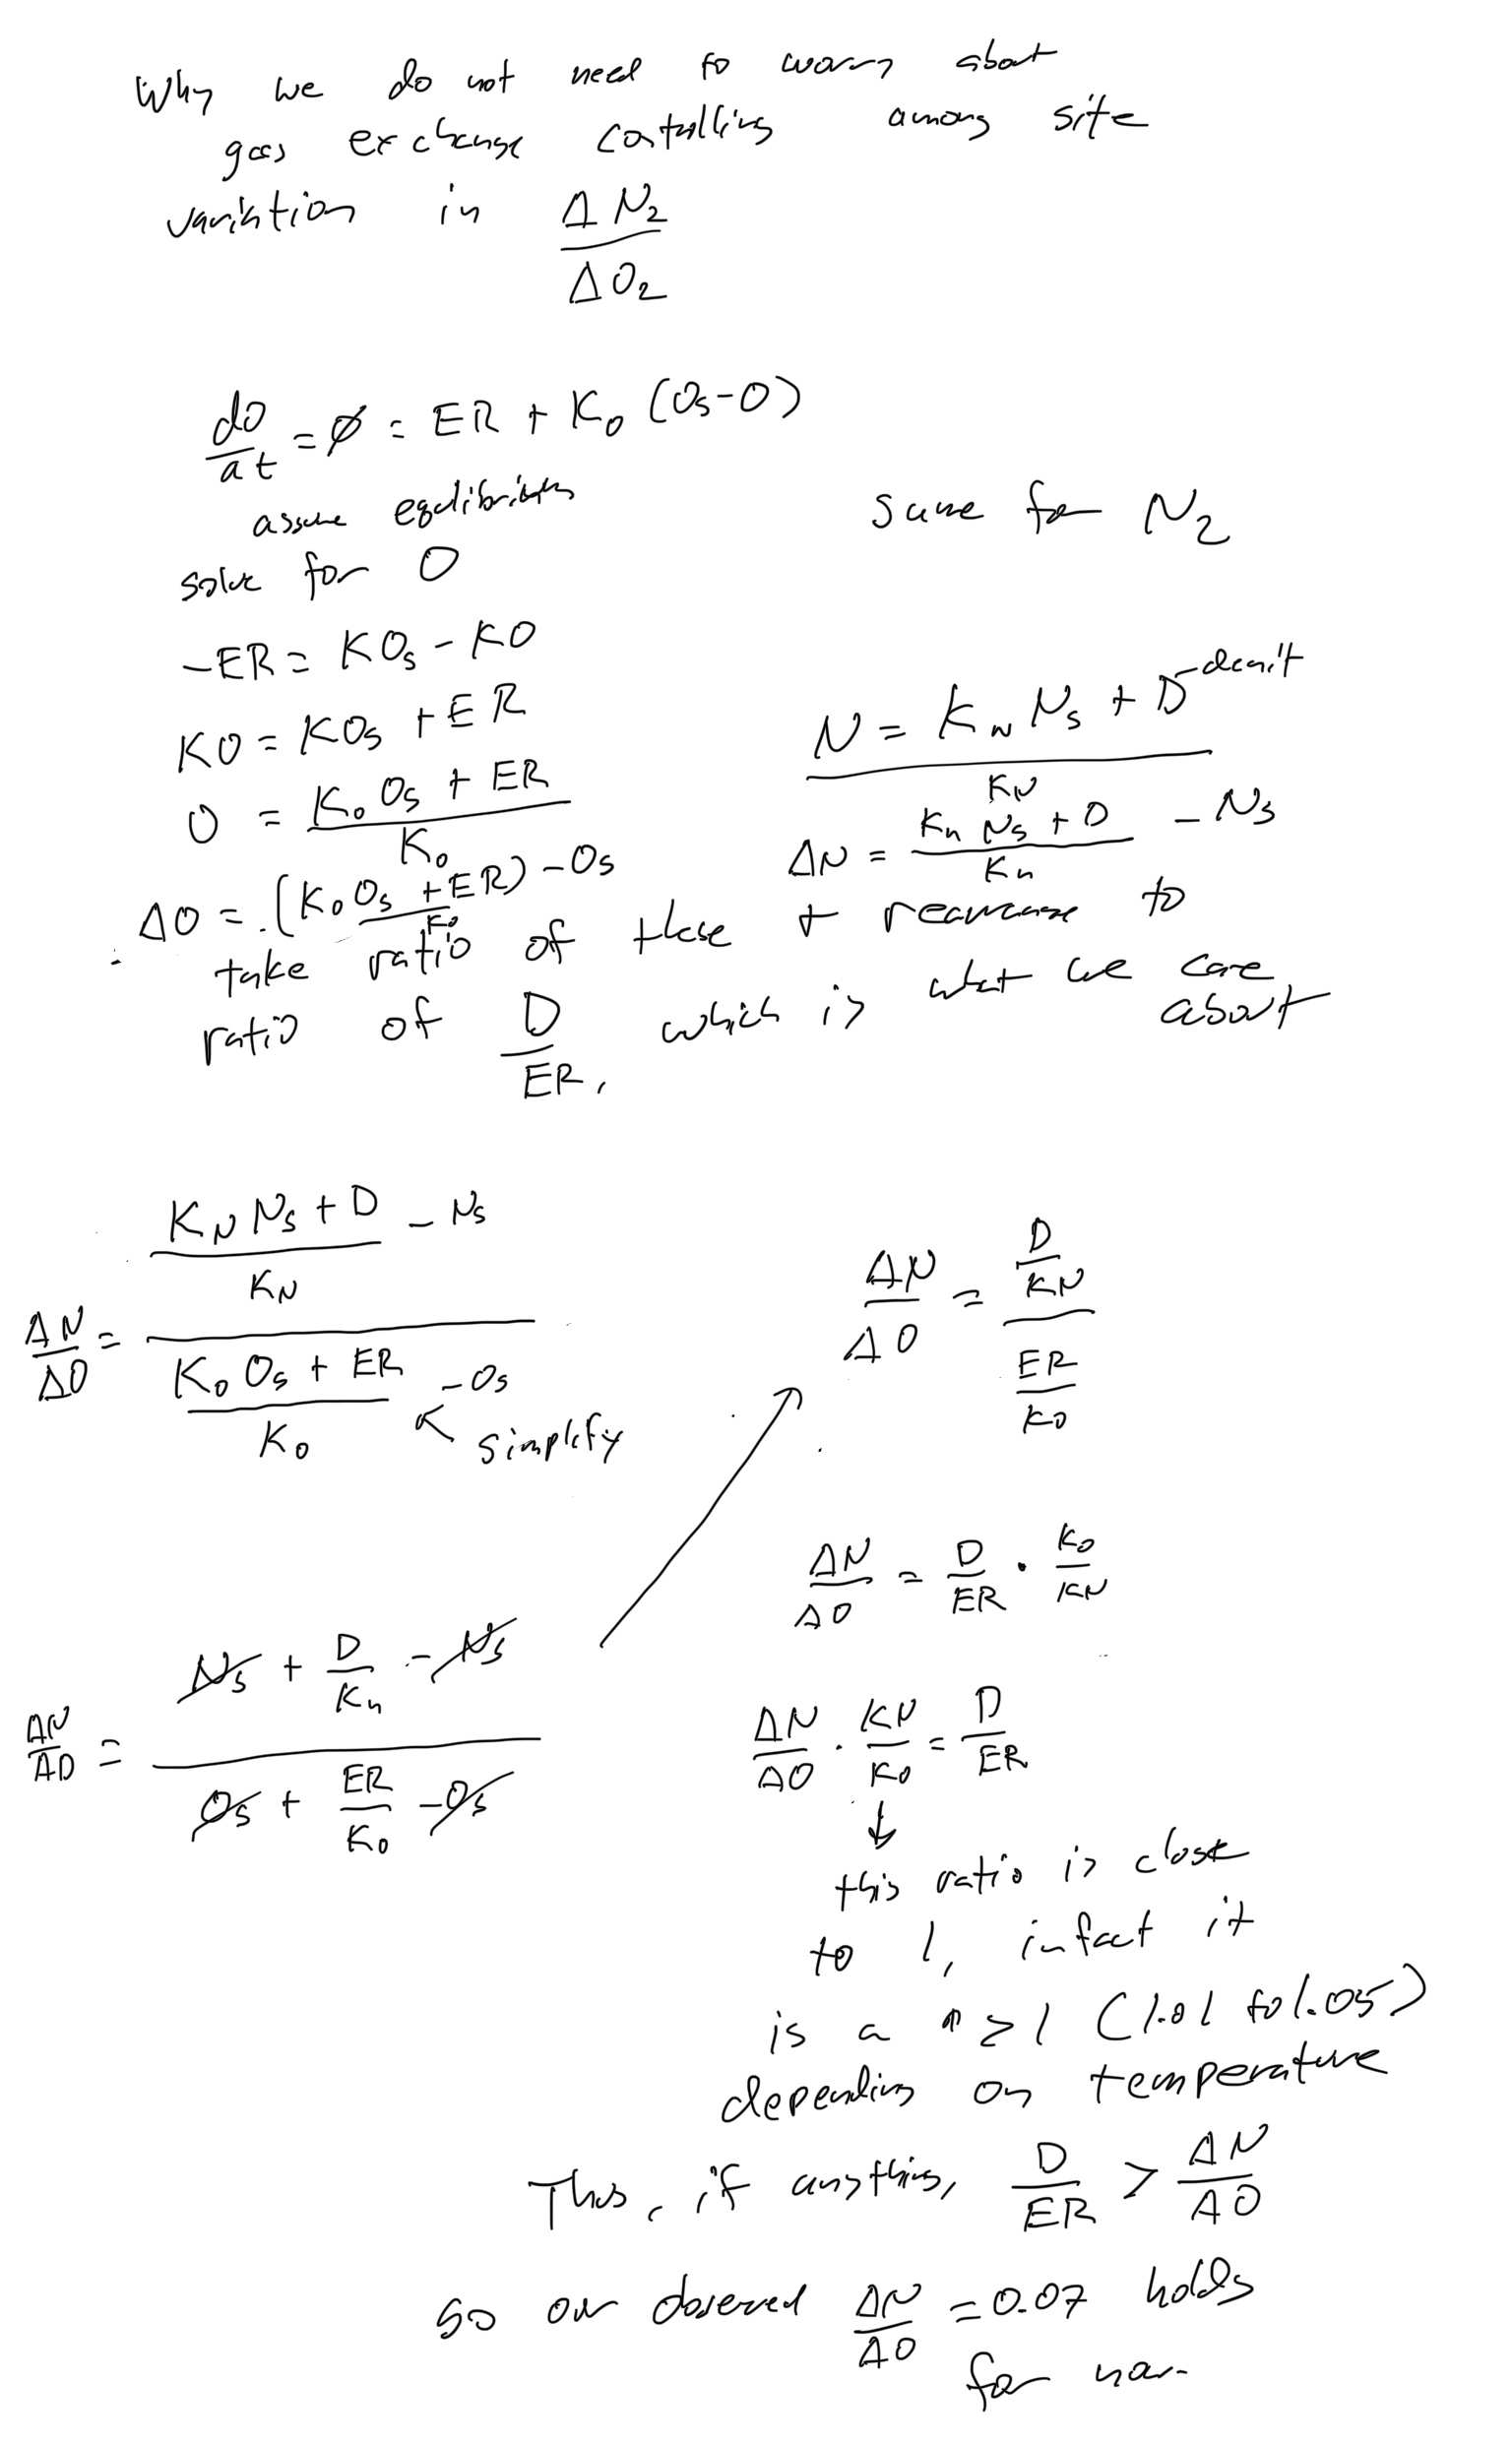 Why we do not need to worry about
gas exchange controlling among site
variation in ΔN₂/ΔO₂
dO/dt = ∅ = ER + K₀ (Os-O)
assume equilibrium
solve for O
-ER = KOs - KO
KO = KOs + ER
O = (K₀ Os + ER)/K₀
ΔO = (K₀Os + ER)/K₀ - Os
same for N₂
N = (K_N Ns + D)/K_N - denit
ΔN = (Kn Ns + D)/Kn - Ns
take ratio of these + rearrange to
ratio of D/ER, which is what we care
about
ΔN/ΔO = ((K_N Ns + D)/K_N - Ns)/((K₀ Os + ER)/K₀ - Os)
simplify
ΔN/ΔO = (Ns + D/Kn - Ns)/(Os + ER/K₀ - Os)
ΔN/ΔO = (D/K_N)/(ER/K₀)
ΔN/ΔO = D/ER · K₀/K_N
ΔN/ΔO · K_N/K₀ = D/ER
↓
this ratio is close
to 1, infact it
is a > 1 (1.01 to 1.05)
depending on temperature
Thus, if anything, D/ER > ΔN/ΔO
so our observed ΔN/ΔO = 0.07 holds
for now